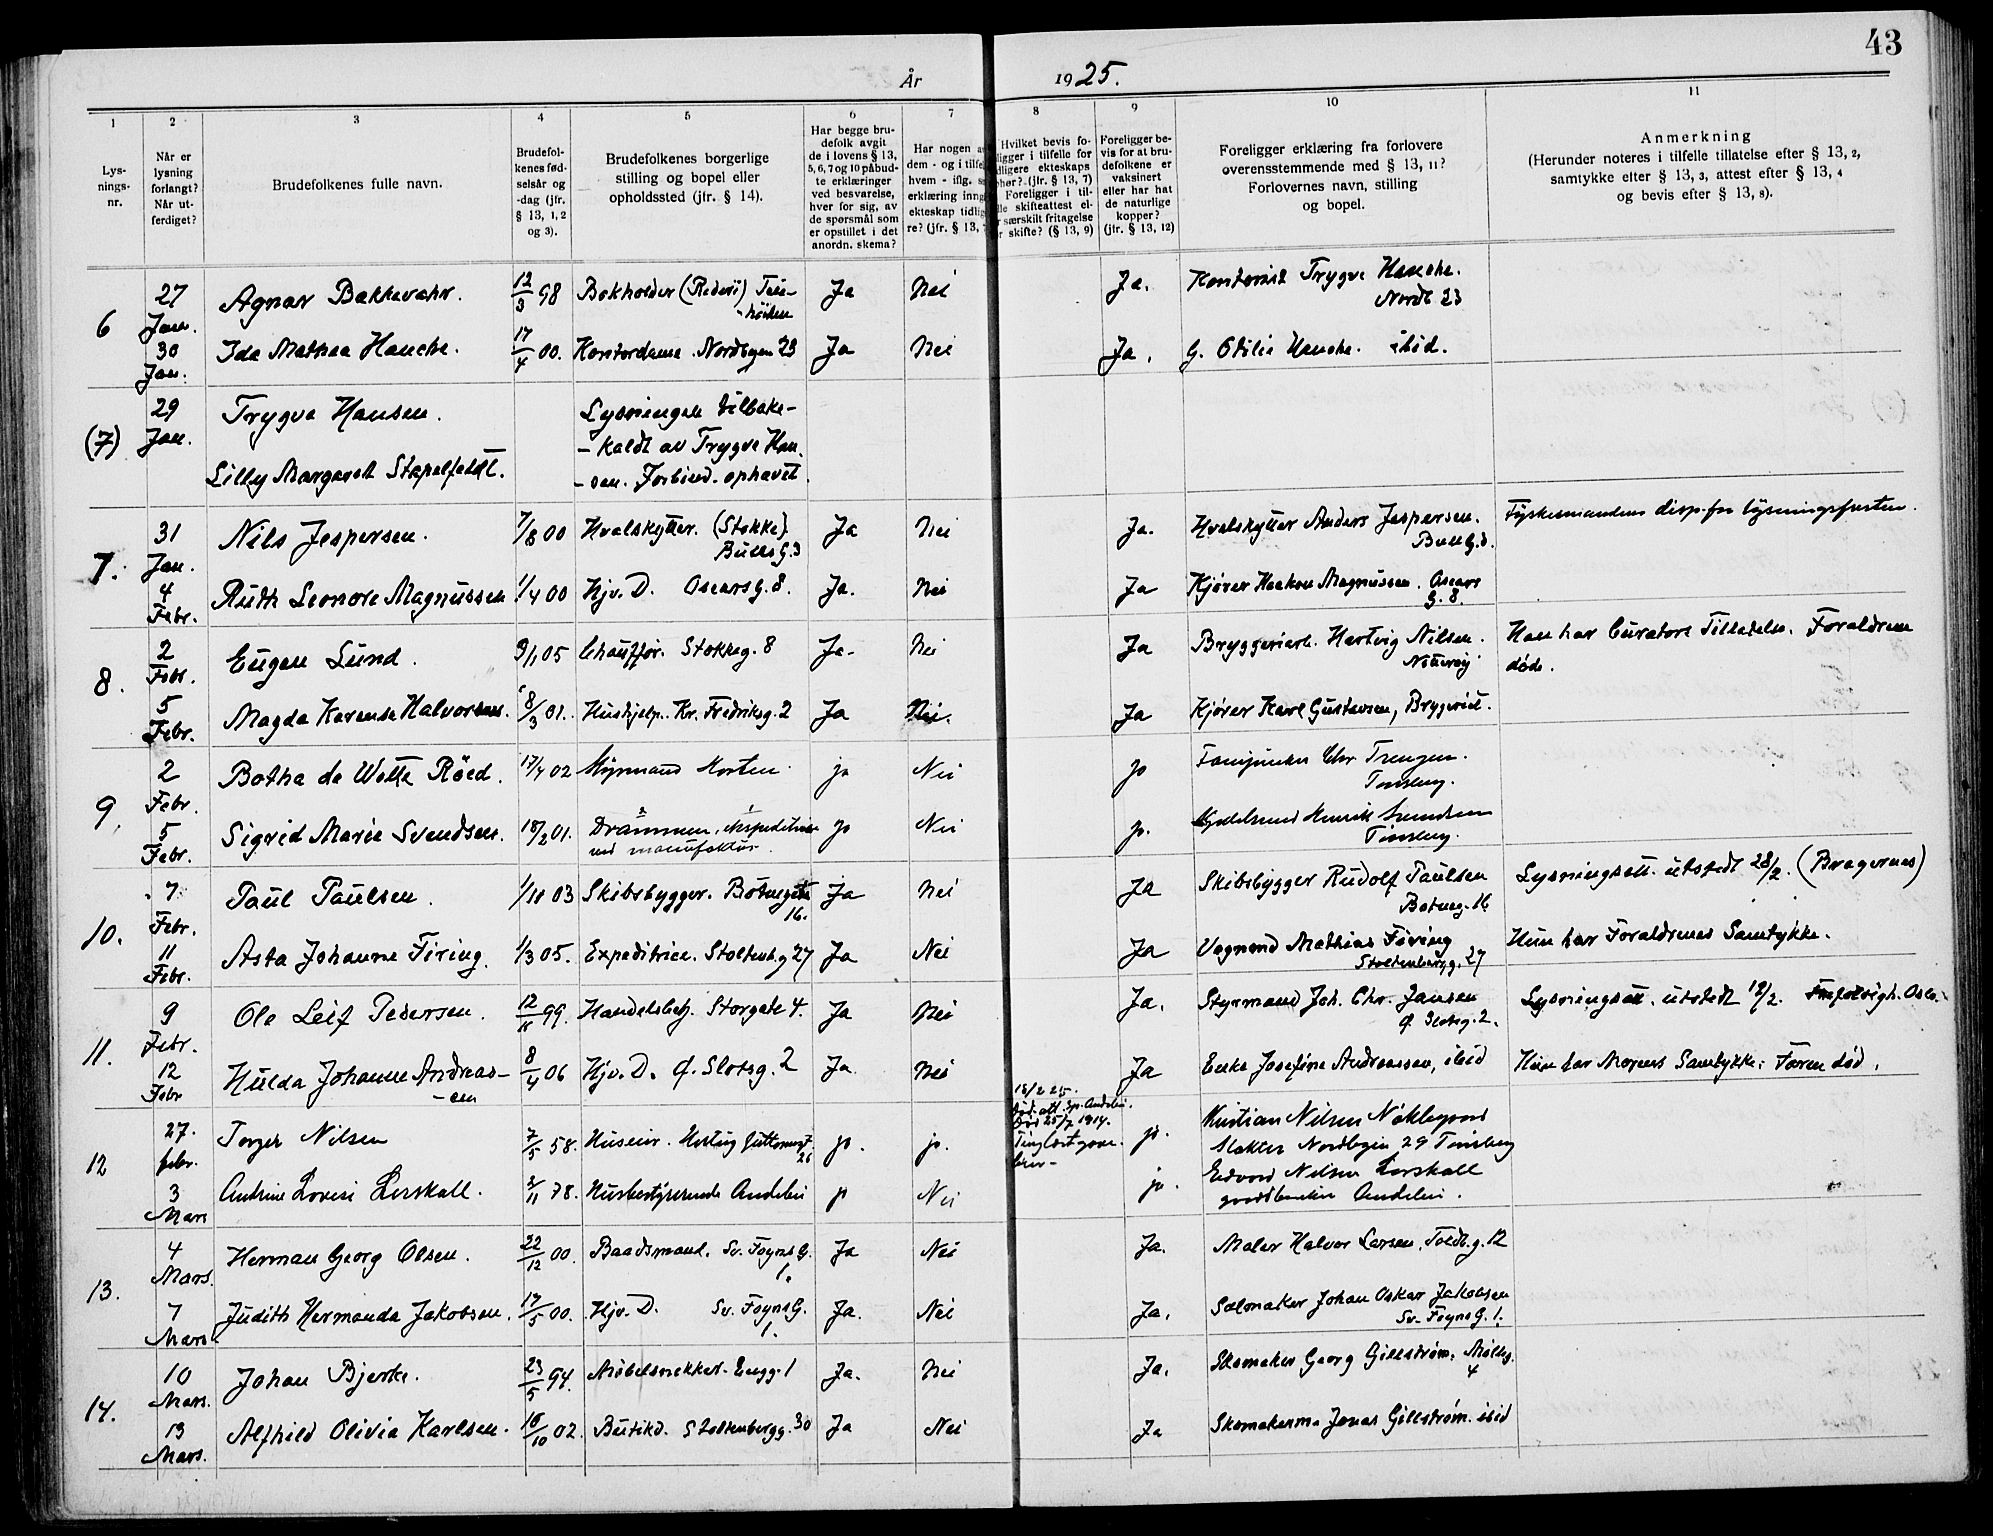 43
År 1925.
1
2
3
4
5
6
7
8
9
10
11
Lys-
nings-
nr.
Når er
lysning
forlangt?
Når ut-
ferdiget?
Brudefolkenes fulle navn.
Brudefol-
kenes fød-
selsår og
-dag (jfr.
§ 13, 1, 2
og 3).
Brudefolkenes borgerlige
stilling og bopel eller
opholdssted (jfr. § 14).
Har begge bru-
defolk avgit
de i lovens § 13,
5, 6, 7 og 10 påbud-
te erklæringer
ved besvarelse,
hver for sig, av
de spørsmål som
er opstillet i det
anordn. skema?
Har nogen a
dem - og i tilfel
hvem - iflg. s
erklæring inng
ekteskap tidlig
re? (jfr. § 13, 7
Hvilket bevis fo-
ligger i tilfelle for
idligere ekteskaps
phør? (jfr. § 13, 7)
Foreligger i til-
lle skifteattest el-
r særskilt fritagelse
r skifte? (§ 13, 9)
Foreligger be-
vis for at bru-
defolkene er
vaksinert
eller har hat
de naturlige
kopper?
(jfr. § 13, 12)
Foreligger erklæring fra forlovere
overensstemmende med § 13, 11?
Forlovernes navn, stilling
og bopel.
Anmerkning
(Herunder noteres i tilfelle tillatelse efter § 13, 2,
samtykke efter § 13, 3, attest efter § 13, 4
og bevis efter § 13, 8).
6
27 Jan. Agnar Bakkevahr. 12/3 98 Bokholder (Rederi) Teie-
-höiden Ja Nei Ja. Kontorist Trygve Hauche.
Nordb 23
30 Jan. Ida Mathea Hauche. 17/4 00. Kontordame. Nordbyen 23 Ja Nei Ja. G. Otilie Hauche. ibid.
(7)
29 Jan. Trygve Hansen. Lysningen tilbake-
-kaldt av Trygve Han-
Lilly Margareth Stapelfeldt. -sen. Forbind. ophævet.
7.
31 Jan. Nils Jespersen. 7/8 00 Hvalskytter. (Stokke).
Bullsg. 3 Ja Nei Ja. Hvalskytter Anders Jespersen.
Bullg. 3. Fylkesmandens disp. for lysningsfristen.
4 Febr. Ruth Leonore Magnussen 1/4 00 Hjv. D. Oscarsg. 8. Ja. Nei Ja Kjører Haakon Magnussen. Oscars
g. 8.
8.
2 Febr. Eugen Lund. 9/1 05 Chauffør. Stokkeg. 8 Ja- Nei Ja Bryggeriarb. Hartvig Nilsen.
Nøtterøy Han har Curators Tilladelse. Forældrene
døde.
5 Febr. Magda Karense Halvorsen. 8/3 01. Hushjelp. Kr. Fredriksg. 2 Ja Nei. Ja Kjører Karl Gustavsen, Bryggeriet.
9
2 Febr. Botha de Wette Röed. 17/4 02 Styrmand Horten. ja Nei ja Fanejunker Chr Trengen.
Tønsberg.
5 Febr. Sigrid Marie Svendsen. 18/2 01. Drammen, ekspeditrice
ved manufaktur. ja Nei ja. Henrik Svendsen
Tønsberg.
10.
7 Febr. Paul Paulsen. 1/11 03 Skibsbygger. Botnegaten
16. Ja Nei Ja Skibsbygger Rudolf Paulsen
Botneg. 16 Lysningsatt. utstedt 28/2. (Bragernes)
11 Febr. Asta Johanne Firing. 1/3 05. Expeditrice. Stoltenb.g 27 Ja Nei Ja Vognmand Mathias Firing
Stoltenbergg. 27 Hun har Forældrenes Samtykke.
11.
9 Febr. Ole Leif Pedersen. 12/11 99. Handelsbetj. Storgate 4. Ja Nei Ja. Styrmand Joh. Chr. Jansen
Slotsg. 2. Lysningsatt. utstedt 18/2. Oslo.
12 Febr Hulda Johanne Andreas-
-sen 8/4 06 Hjv. D. Slotsg. 2 Ja Nei Ja Enke Josefine Andreassen, ibid Hun har Morens Samtykke: Faren død.
12
27. febr. Torger Nilsen 7/5 58. Huseier. Hertug Guttormsgt
26 ja. ja. 18/2 25.
død 25/7 1914.
ja. Kristian Nilsen
Slakter Nordbyen 29 Tønsberg
3 Mars Andrine Lovise Lerskall. 3/11 78. Husbestyrerinde Andebu ja Nei ja. Edvard Nilsen Lerskall
gaardbruker Andebu.
13.
4 Mars. Herman Georg Olsen. 22/12 00. Baadsmand. Sv. Foyns G.
1. Ja Nei Ja. Maler Halvor Larsen, Toldb.g. 12
7 Mars Judith Hermanda Jakobsen. 17/5 00. Hjv. D. Sv. Foyns G.
1. Ja. Nei Ja. Salmaker Johan Oskar Jakobsen
Sv. Foyns G. 1.
14.
10 Mars. Johan Bjerke. 23/5 94. Møbelsnekker. Engg. 1 Ja. Nei Ja. Skomaker Georg Gillström. Mølleg.
4
13 Mars. Alfhild Olivia Karlsen. 18/10 02. Butikd. Stoltenbergg. 30 Ja Nei Ja Skomakerm. Jonas Gillström. ibid